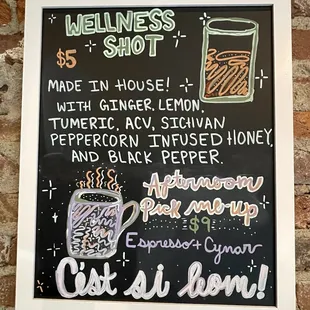 WELLNESS
SHOT
$5
MADE IN HOUSE!
WITH GINGER, LEMON,
TUMERIC, ACV, SICHVAN
PEPPERCORN INFUSED HONEY,
AND BLACK PEPPER.
Afternoon
Pick me-up
$9
Espresso + Cynar
C'est si bon!